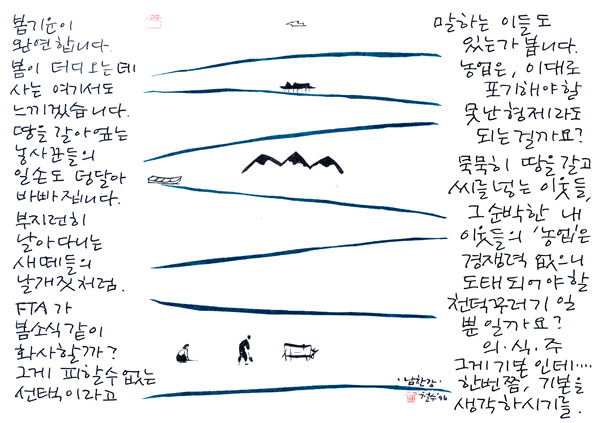 봄기운이
완연합니다.
봄이 더디오는데
사는 여기서도
느끼겠습니다.
땅을 갈아엎는
농사꾼들의
일손도 덩달아
바빠집니다.
부지런히
날아다니는
새떼들의
날개짓처럼.
FTA가
봄소식같이
화사할까?
그게 피할수없는
선택이라고
말하는 이들도
있는가 봅니다.
농업은, 이대로
포기해야할
못난형제라도
되는걸까요?
묵묵히 땅을 갈고
씨를 넣는 이웃들,
그 순박한 내
이웃들의 '농업'은
경쟁력 없으니
도태되어야할
천덕꾸러기 일
뿐일까요?
의·식·주
그게 기본인데....
한번쯤, 기본을
생각하시기를.
·남한강·
철수'06